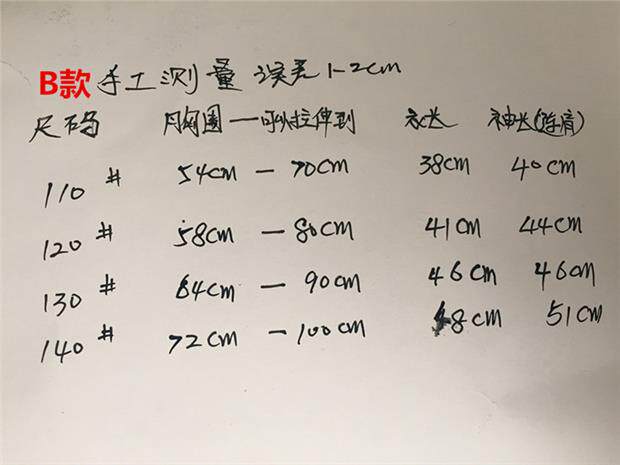 B款 手工测量 误差1-2cm
尺码 胸围一可以拉伸到 衣长 袖长(连肩)
110# 54cm — 70cm 38cm 40cm
120# 58cm — 80cm 41cm 44cm
130# 64cm — 90cm 46cm 46cm
140# 72cm — 100cm 48cm 51cm